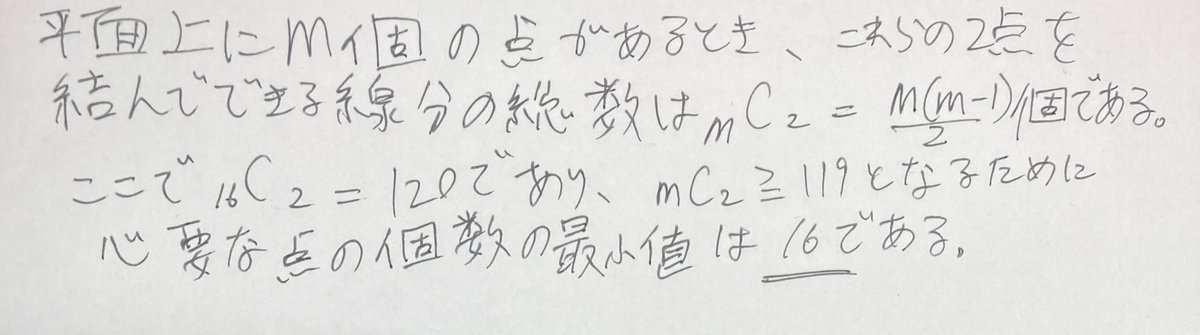 平面上にm個の点があるとき、これらの2点を
結んでできる線分の総数は mC2 = m(m-1)/2 個である。
ここで 16C2 = 120であり、mC2 ≧ 119となるために
必要な点の個数の最小値は 16である。